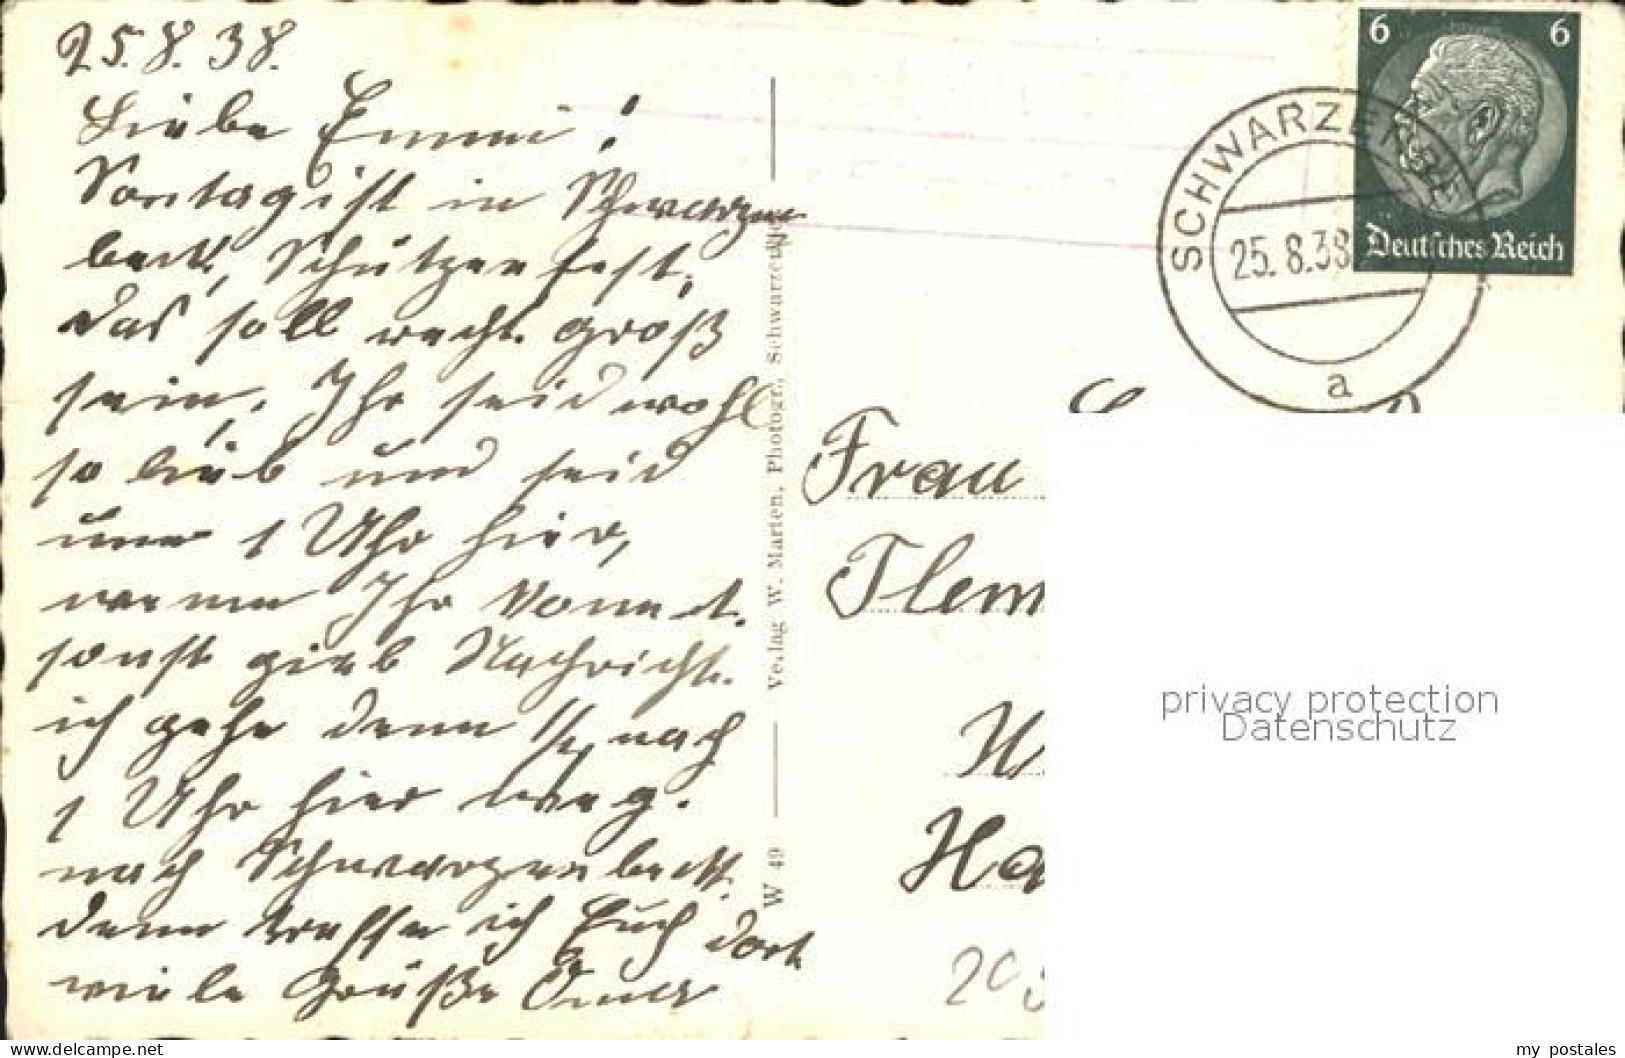 25.8.38.
Liebe Emmi!
Sontag ist in Schwarzen
beck, Schützenfest,
das soll recht groß
sein, Ihr seid wohl
so lieb und seid
um 1 Uhr hier,
wenn Ihr könnt.
sonst gieb Nachricht.
ich gehe denn nach
1 Uhr hier weg.
nach Schwarzenbeck.
denn treffe ich Euch dort
viele Grüße
W 49
Verlag W. Marten, Photogr., Schwarzenbek
6 6
Deutsches Reich
SCHWARZENBEK
25.8.38
a
Frau
Flem
Ha
privacy protection
Datenschutz
www.delcampe.net
my_postales